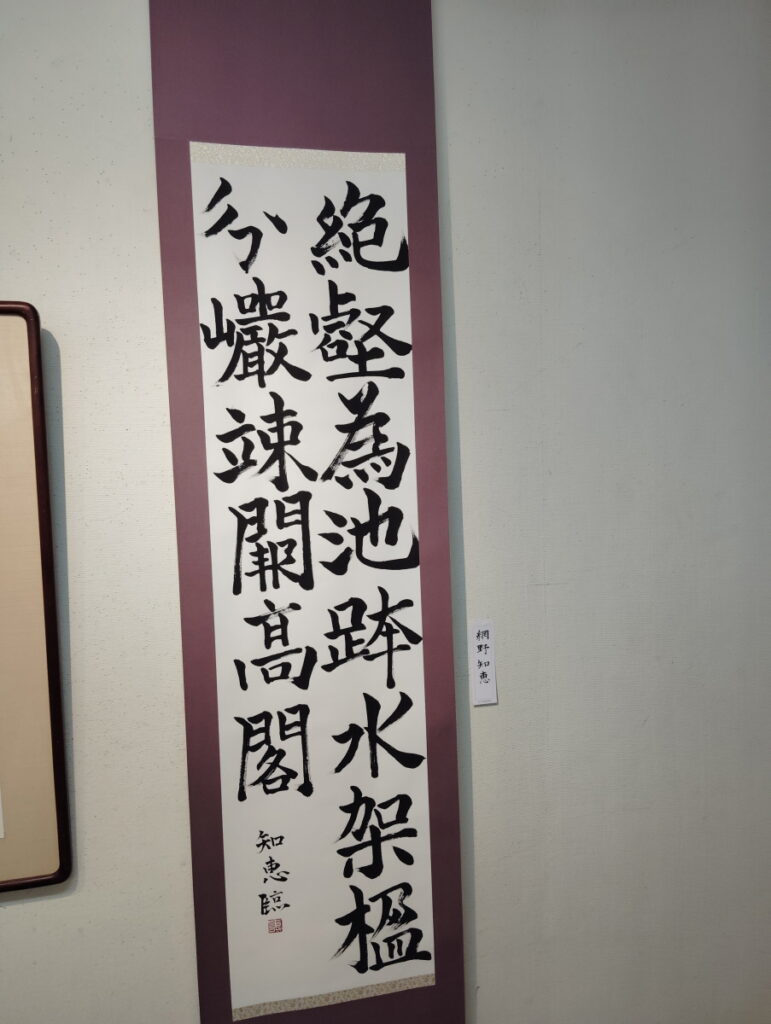 絶壑為池跨水架楹
分巖竦闕高閣
知恵臨
網野知恵